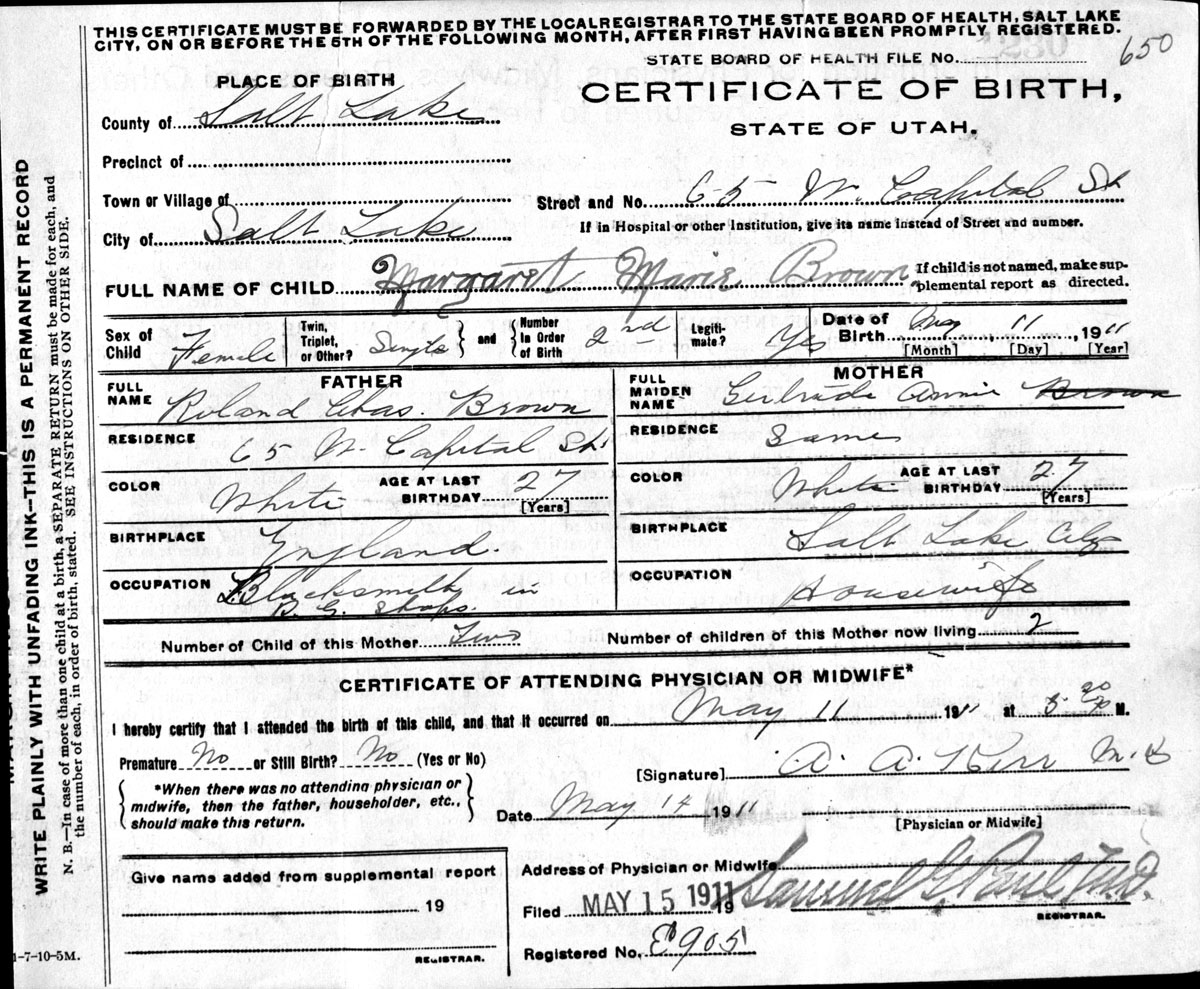 THIS CERTIFICATE MUST BE FORWARDED BY THE LOCAL REGISTRAR TO THE STATE BOARD OF HEALTH, SALT LAKE
CITY, ON OR BEFORE THE 5TH OF THE FOLLOWING MONTH, AFTER FIRST HAVING BEEN PROMPTLY REGISTERED.
650
STATE BOARD OF HEALTH FILE NO.
PLACE OF BIRTH
CERTIFICATE OF BIRTH,
STATE OF UTAH.
County of Salt Lake
Precinct of
Town or Village of
Street and No. 65 W. Capital St
City of Salt Lake
If in Hospital or other Institution, give its name instead of Street and number.
FULL NAME OF CHILD Margaret Marie Brown
If child is not named, make sup-
plemental report as directed.
Sex of Child Female
Twin, Triplet, or Other? Single
and
Number In Order of Birth 2nd
Legiti-mate? Yes
Date of Birth May 11, 1911
[Month] [Day] [Year]
FATHER
FULL NAME Roland Chas. Brown
RESIDENCE 65 W. Capital St
COLOR White
AGE AT LAST BIRTHDAY 27
[Years]
BIRTHPLACE England.
OCCUPATION Blacksmith in
Shops.
MOTHER
FULL MAIDEN NAME Gertrude Annie Brown
RESIDENCE Same
COLOR White
AGE AT LAST BIRTHDAY 27
[Years]
BIRTHPLACE Salt Lake City
OCCUPATION Housewife
Number of Child of this Mother Two
Number of children of this Mother now living 2
CERTIFICATE OF ATTENDING PHYSICIAN OR MIDWIFE*
I hereby certify that I attended the birth of this child, and that it occurred on May 11 1911 at 5 M.
Premature No or Still Birth? No (Yes or No)
*When there was no attending physician or
midwife, then the father, householder, etc.,
should make this return.
[Signature] A. A. Kerr M.D
Date May 14 1911
[Physician or Midwife]
Give name added from supplemental report
19
REGISTRAR.
Address of Physician or Midwife
Filed MAY 15 1911 19
Samuel G. Paul M.D.
REGISTRAR.
Registered No. E905
1-7-10-5M.
WRITE PLAINLY WITH UNFADING INK—THIS IS A PERMANENT RECORD
N. B.—In case of more than one child at a birth, a SEPARATE RETURN must be made for each, and
the number of each, in order of birth, stated. SEE INSTRUCTIONS ON OTHER SIDE.